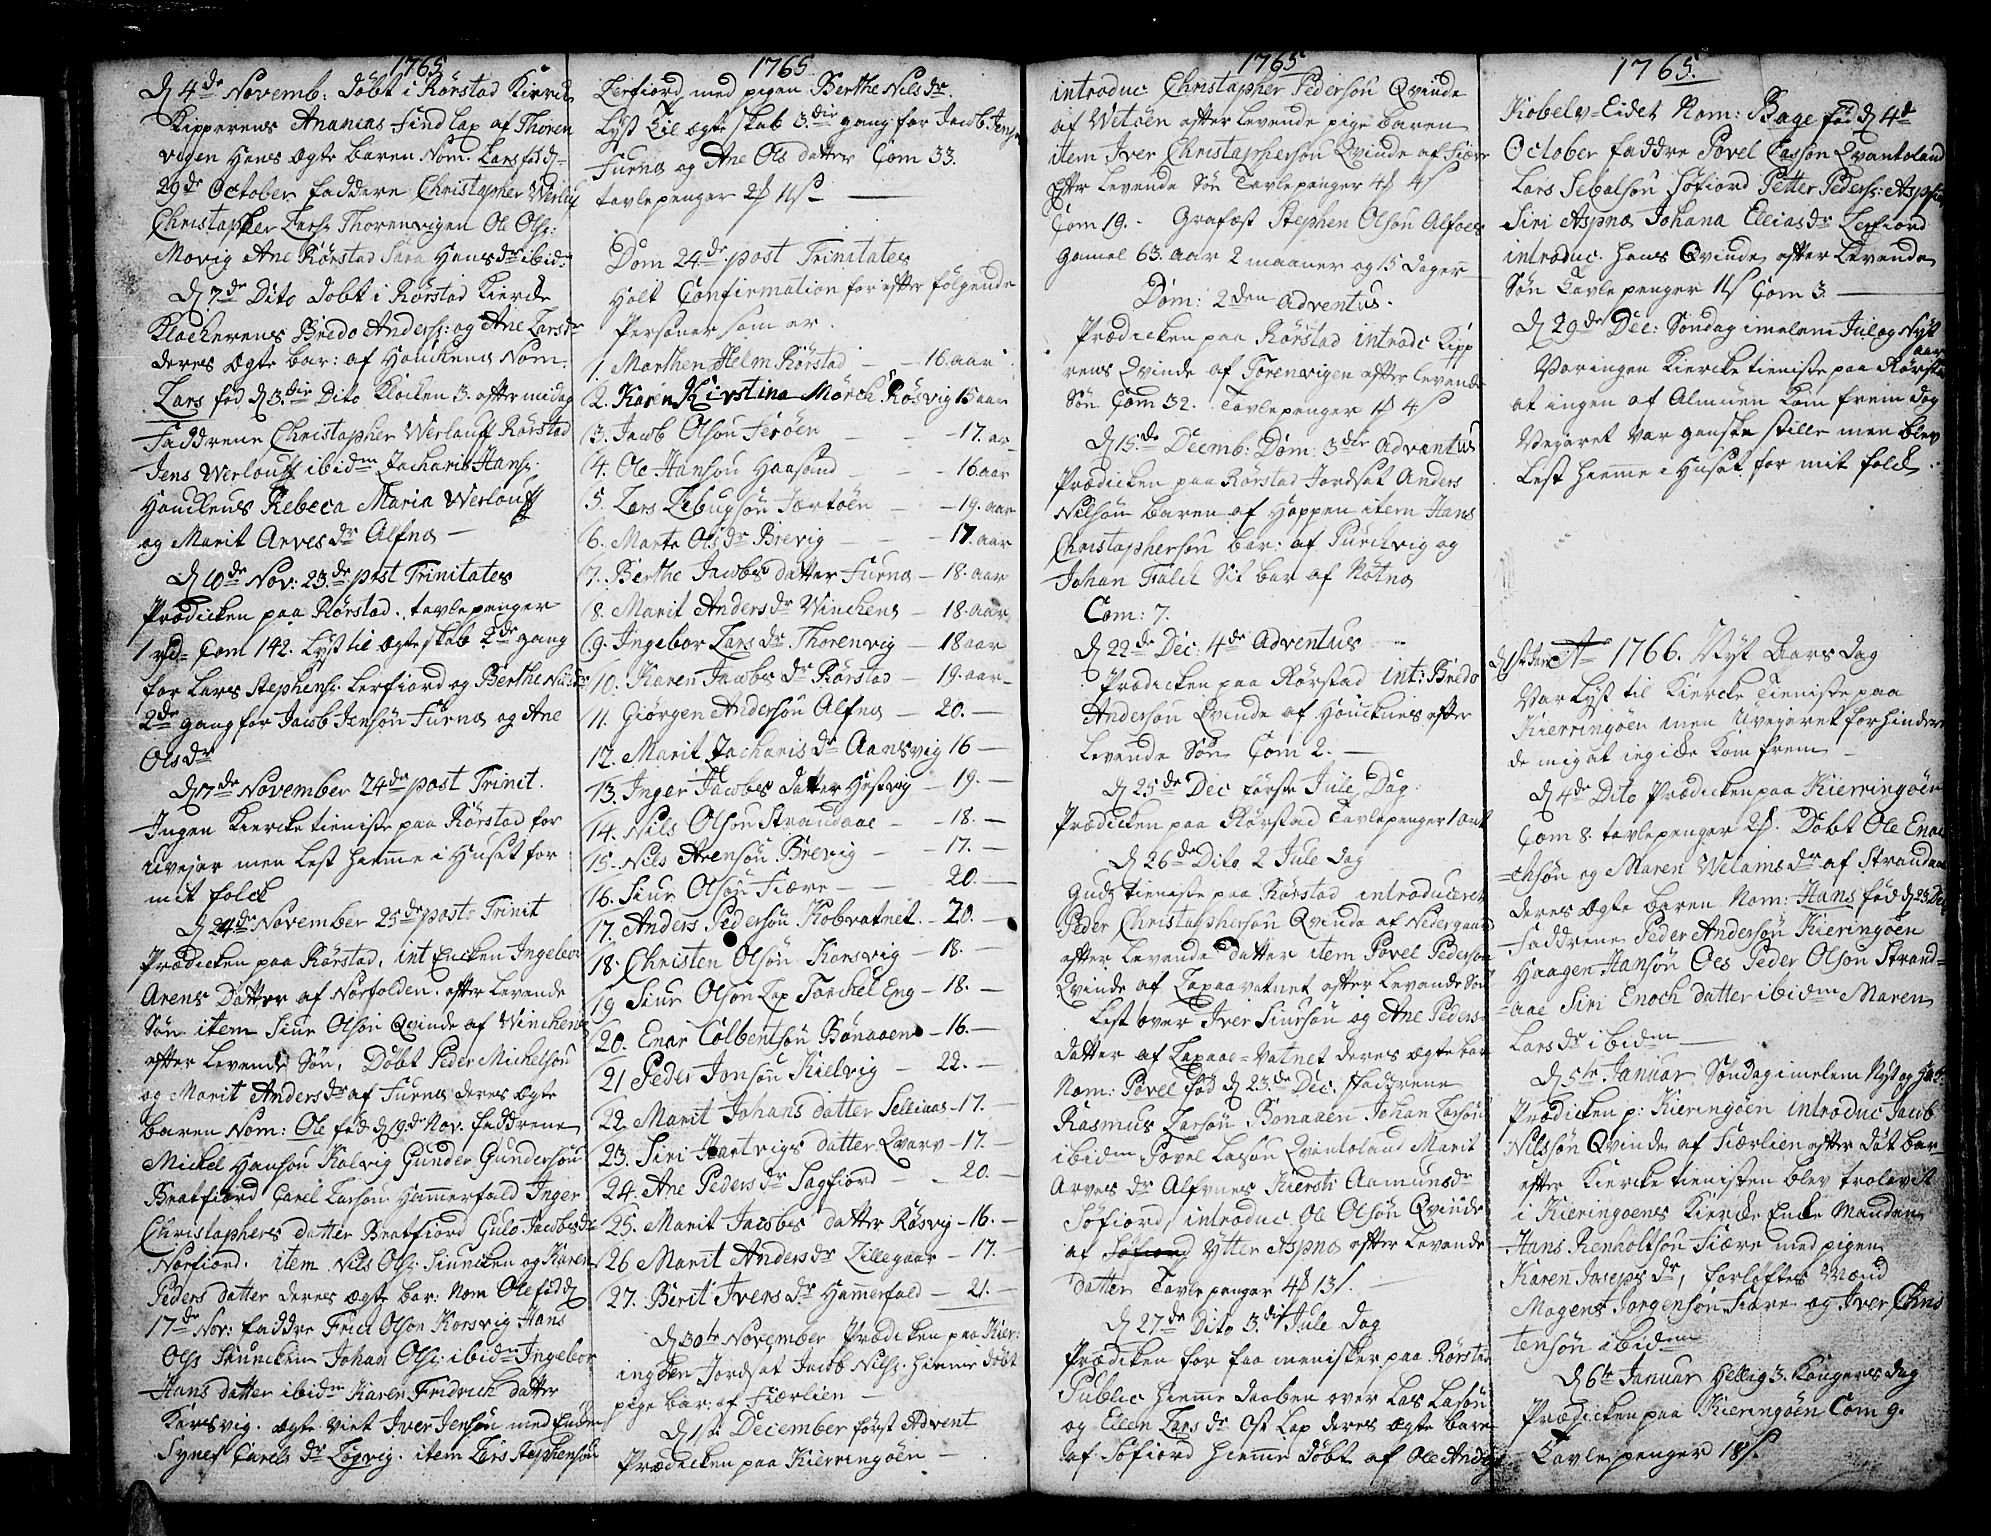 1765
D 4de Novemb: döbt i Rörstad Kircke
Kipperens Ananias Find Lap af Thoren
vigen Hans Ægte baren Nom. Lars föd d
29de October faddere Christopher Werluf
Christopher Larsz Thorenvigen Ole Olsz:
Movig Ane Rörstad Sara Hansdr ibid:
D 7de Dito döbt i Rörstad Kircke
Klockerens Bredo Andersz: og Ane Larsdr
deres Ægte bar: af Houckens Nom.
Lars föd d 3die Dito Klocken 3. efter midag
Faddrene Christopher Werlauff Rörstad
Jens Werlouff ibidm Zacharis Hansz:
Houckens Rebeca Maria Werlouff
og Marit Arvesdr Alfnes
D 10de Nov: 23de post Trinitates
Prædicken paa Rörstad. tavlepenger
Com 142. Lyst til Ægteskab 2de gang
for Lars Stephensz: Lerfiord og Berthe Nilsdr
2de gang for Jacob Jensön Furnes og Ane
Olsdr
D 17de November 24de post Trinit.
Ingen Kiercketieniste paa Rörstad for
Uvejer men Lest hiemme i Huset for
mit folck
D 24de November 25de post: Trinit
Prædicken paa Rörstad, int Encken Ingebor
Arens Datter af Norfolden. efter Levende
Sön item Siur Olsön Qvinde af Winckenes
efter Levende Sön, Döbt Peder Michelsön
og Marit Andersdr af Furnes deres Ægte
baren Nom: Ole föd d 19de Nov. faddrene
Mickel Hansön Kalvig Gunder Gundersön
Bratfiord Carel Larsön Hammerfald Inger
Christophers datter Bratfiord Gulo Jacobsdr
Norfiord. item Nils Olsz: Siuncken og Karen
Peders datter deres Ægte bar: Nom Ole föd d
17de Nov: faddre Frid Olsön Korsvig Hans
Olss Siuncken Johan Olsz: ibidm Ingebor
Hans datter ibidm Karen Fridrich datter
Karsvig. Ægte viet Iver Jensön med Enken
Synef Carels dr Lögvig. item Lars Stephensön
1765
Lerfiord med pigen Berthe Nilsdr.
Lyst til Ægteskab 3die gang for Jacob Jensön
Furnes og Ane Ols datter Com 33.
tavlepenger
Dom 24de post Trinitates
Holt Confirmation for efter fölgende
Personer som er.
1. Marthen Helm Rörstad — 16. aar
2. Karen Kirstina Mörch Rösvig 15 aar
3. Jacob Olsön Feröen — 17. ar
4. Ole Hansön Haasand — 16. aar
5. Lars Zebugsön Jartöen — 19. aar
6. Marte Olsdr Brevig — 17. aar
7. Berthe Jacobs datter Furnes — 18. aar
8. Marit Andersdr Winckens — 18. aar
9. Ingebor Larsdr Thorenvig — 18 aar
10. Karen Jacobs dr Rörstad — 19. aar
11. Giörgen Andersön Alfnes — 20. —
12. Marit Zacharis dr Aansvig 16 —
13. Inger Jacobs datter Hestvig — 19. —
14. Nils Olsön Strandaae — 18. —
15. Nils Arensön Brevig — 17. —
16. Siur Olsön Fiære — 20. —
17. Anders Pedersön Kobvatnet — 20. —
18. Christen Olsön Korsvig — 18. —
19 Siur Olsön Lap Torckel Eng — 18. —
20. Enar Colbentsön Bonaaen — 16. —
21 Peder Jonsön Kielvig — 22. —
22. Marit Johans datter Selliaas — 17. —
23. Siri Hartvigs datter Qvarv — 17. —
24. Ane Peders dr Sagfiord — 20. —
25. Marit Jacobs datter Rösvig — 16. —
26 Marit Anders dr Lillegaar — 17. —
27. Birit Ivers dr Hammerfald — 21. —
D 30te November Prædicken paa Kier-
ingöen Jordsat Jacob Nilsz: hiemme döbt
pige bar: af Fiærlien —
D 1ste December först Advent
Prædicken paa Kierringöen —
1765
introduc Christopher Pedersön Qvinde
af Wetöen efter levende pige baren
item Iver Christophersön Qvinde af Fiære
efter Levende Sön Tavlepenger
Com 19. - Grafæst Stephen Olsön Alfoes
gamel 63. aar 2 maaner og 15 dager
Dom: 2den Adventus.
Prædicken paa Rörstad introdc Kipp
rens Qvinde af Torenvigen efter levende
Sön Com 32. Tavlepenger
D 15de Decmb: Dom: 3die Advantus
Prædicken paa Rörstad Jordsat Anders
Nilsön baren af Hoppen item Hans
Christophersön bar: af Purckvig og
Johan Falck Sit bar af Nötnes
Com: 7.
D 22de Dec: 4de Adventus
Prædicken paa Rörstad int: Bredo
Andersön Qvinde af Houcknes efter
Levende Sön Com 2. —
D 25de Dec förste Jule Dag.
Prædicken paa Rörstad Tavlepenger 1 ort
D 26de Dito 2 Jule dag
Gudz tieniste paa Rörstad introduceret
Peder Christophersön Qvinde af Nedergaard
efter Levende datter item Povel Pedersön
Qvinde af Laxaavatnet efter Levende Sön
Lest over Iver Siursön og Ane Peders-
datter af Laxaae-Vatnet deres Ægte bar
Nom: Povel föd d 23de Dec. Faddrene
Rasmus Larsön Bonaaen Johan Larsön
ibidm Povel Lasön Qvantoland Marit
Arves dr Alfvnes Kiersti Aamunsdr
Söfiord, introduc Ole Olsön Qvinde
af Söfiord Ytter Aspnes efter Levende
datter Tavlepenger
D 27de Dito 3die Jule dag
Prædicken for faa menisker paa Rörstad
Public hiemme daaben over Las Lasön
og Ellen Larsdr Ost Lap deres Ægte bare
af Söfiord hiemme döbt af Ole Andersz
1765.
Kobelv-Eidet Nom: Bage föd d 4de
October faddre Povel Lassön Qvantoland
Lars Sebalsön Söfiord Petter Pedersz: Aspfi
Siri Aspnes Johana Ellias dr Lerfiord
introduc hans Qvinde efter Levende
Sön Tavlepenger Com 3.
D 29de Dec: Söndag imelem Jul og Nyt
aar
Var ingen Kiercketieniste paa Rörsta
at ingen af Almuen kom frem dog
Vegaret var ganske stille men blev
Lest hiemme i Huset for mit folck.
D 1ste Jan Ao 1766. Nyt Aars dag
Var Lyst til Kiercke Tieniste paa
Kierringöen men Uvejeret forhindre
de mig at ieg icke kom frem —
D 4de Dito Prædicken paa Kierringöen
Com 8. tavlepenger Döbt Ole Enoc
-chsön og Maren Welams dr af Strandaae
deres Ægte baren Nom: Hans föd d 23 Dec
Faddrene Peder Andersön Kieringöen
Haagen Hansön Oes Peder Olsön Strand-
aae Siri Enoch datter ibidm Maren
Lars dr ibidm
D 5te Januar Söndag imelem Nyt og H3K
Prædicken p: Kieringöen introduc Jacob
Nilsön Qvinde af Fiærlien efter döt bar
efter Kiercke tienisten blev trolovet
i Kieringöens Kiercke Enke Manden
Hans Renholtsön Fiære med pigen
Karen Joseps dr, forlöftes Mænd
Mogens Jorgensön Fiære og Iver Chris
tensön ibidm
D 6te Januar Hellig 3. Kongers dag
Prædicken paa Kieringöen Com 9.
Tavlepenger